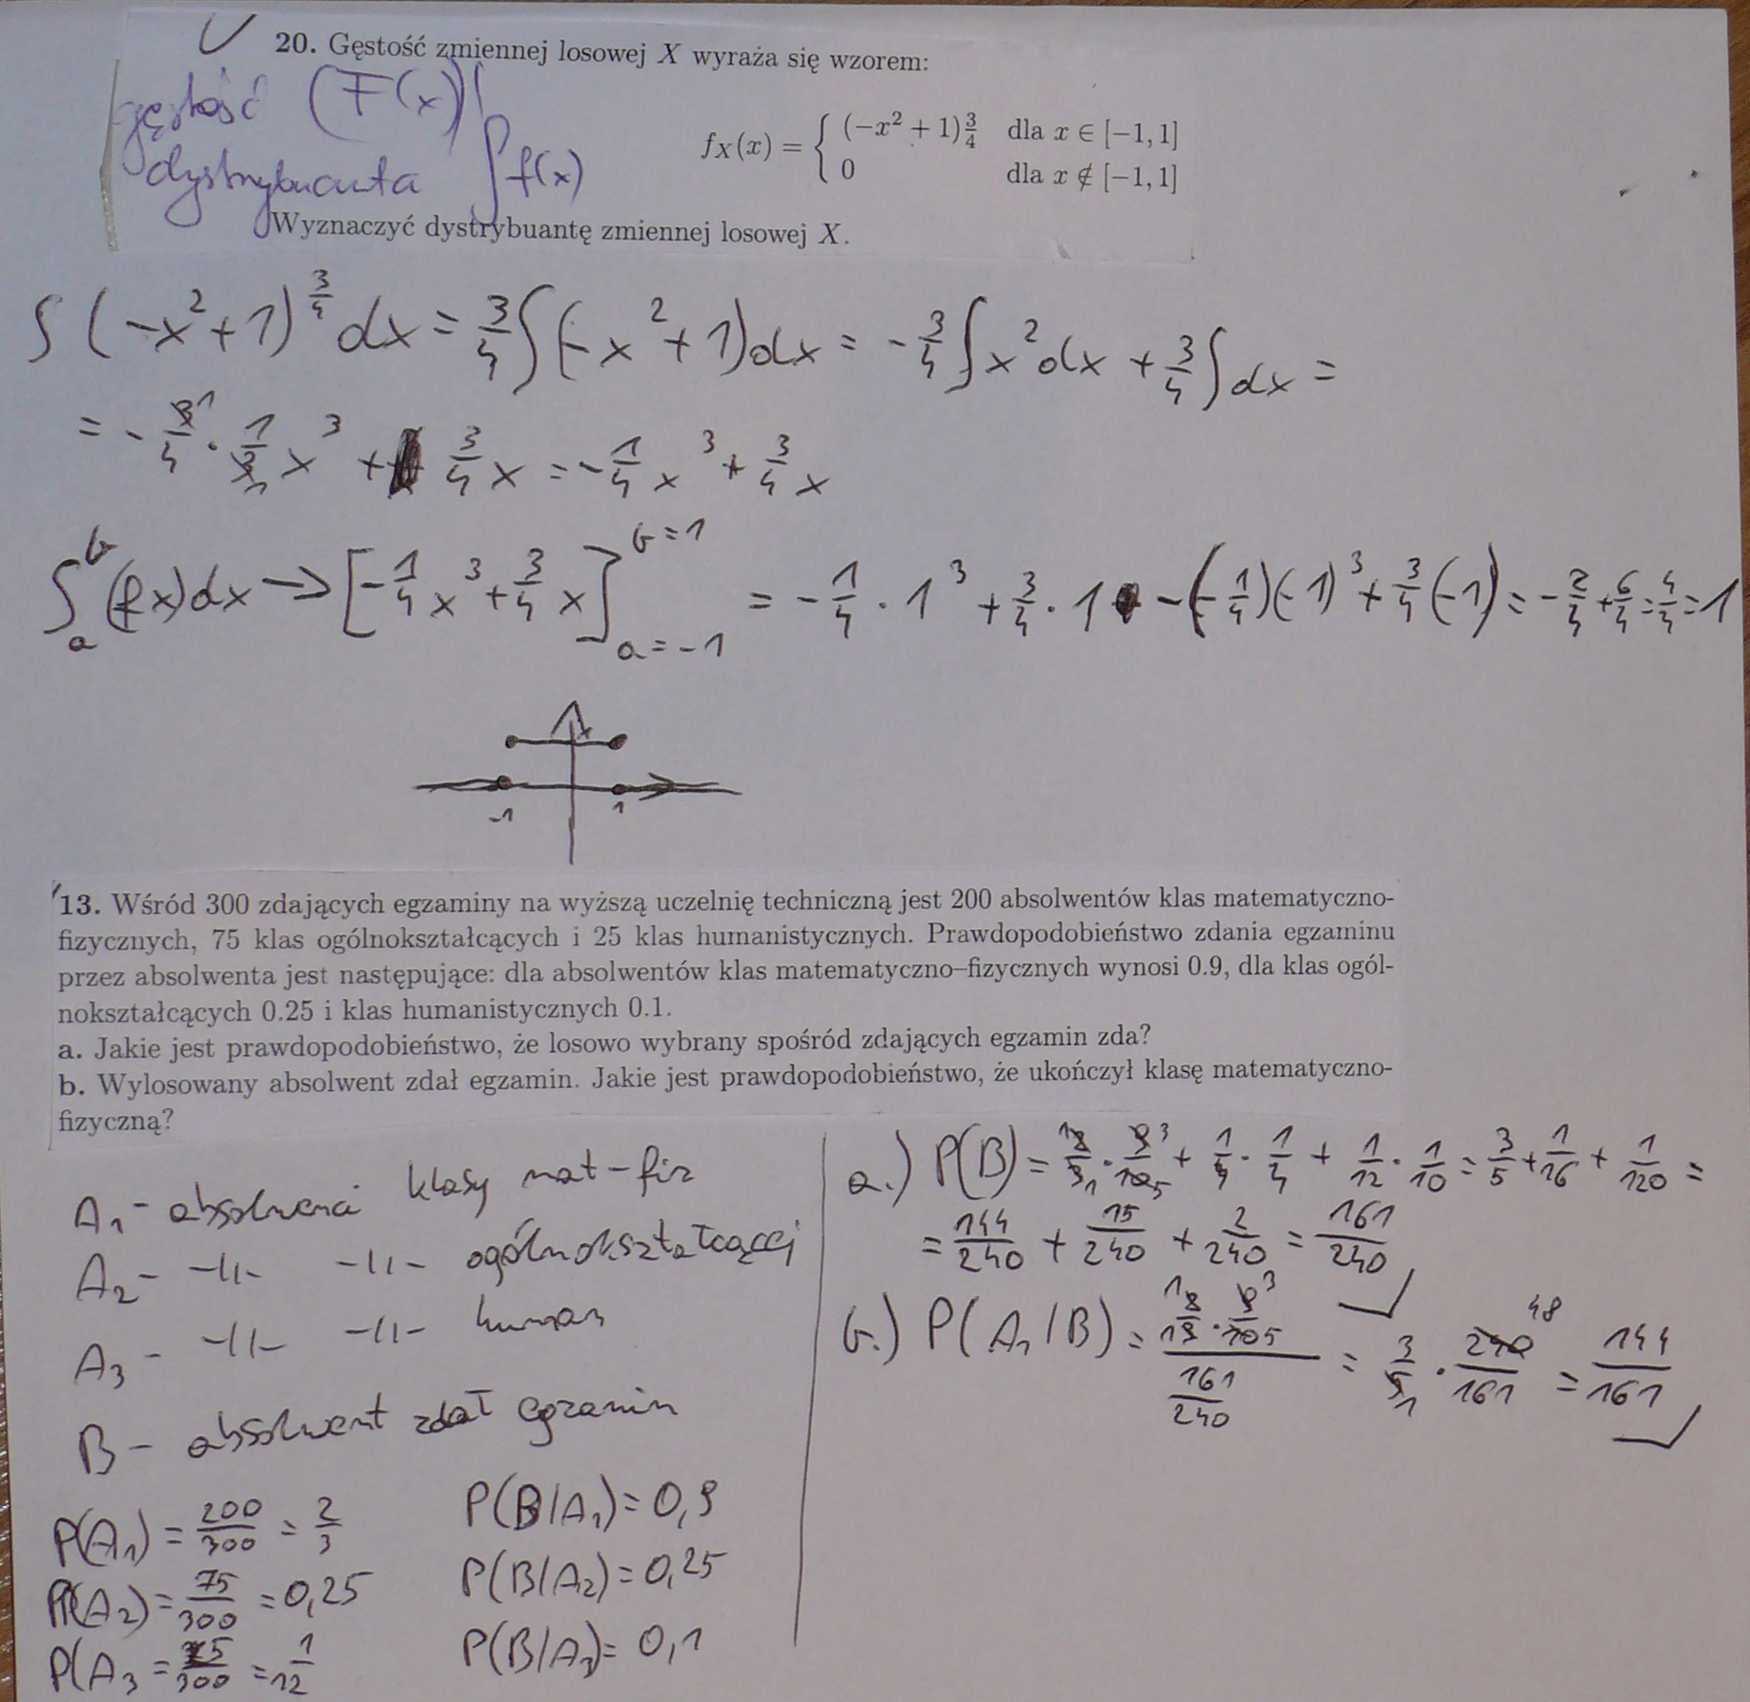 20. Gęstość zmiennej losowej X wyraża się wzorem:
gęstość (F(x))'
dystrybuanta ∫f(x)
f_X(x) = { (−x² + 1)¾ dla x ∈ [−1, 1]
0 dla x ∉ [−1, 1]
Wyznaczyć dystrybuantę zmiennej losowej X.
∫(-x²+1)¾ dx = ¾∫(-x²+1)dx = -¾∫x²dx + ¾∫dx =
= -3/4 · 1/3 x³ + 3/4 x = -1/4 x³ + 3/4 x
∫_a^b f(x)dx → [-1/4 x³ + 3/4 x]_{a=-1}^{b=1} = -1/4 · 1³ + 3/4 · 1 - (-1/4)(-1)³ + 3/4(-1)) = -2/4 + 6/4 = 4/4 = 1
-1 1
13. Wśród 300 zdających egzaminy na wyższą uczelnię techniczną jest 200 absolwentów klas matematyczno-
fizycznych, 75 klas ogólnokształcących i 25 klas humanistycznych. Prawdopodobieństwo zdania egzaminu
przez absolwenta jest następujące: dla absolwentów klas matematyczno–fizycznych wynosi 0.9, dla klas ogól-
nokształcących 0.25 i klas humanistycznych 0.1.
a. Jakie jest prawdopodobieństwo, że losowo wybrany spośród zdających egzamin zda?
b. Wylosowany absolwent zdał egzamin. Jakie jest prawdopodobieństwo, że ukończył klasę matematyczno-
fizyczną?
A₁ - absolwenci klasy mat-fiz
A₂ - -||- -||- ogólnokształcącej
A₃ - -||- -||- human
B - absolwent zdał egzamin
P(A₁) = 200/300 = 2/3
P(A₂) = 75/300 = 0,25
P(A₃ = 25/300 = 1/12
P(B/A₁) = 0,9
P(B/A₂) = 0,25
P(B/A₃) = 0,1
a.) P(B) = 2/3 · 9/10 + 1/4 · 1/4 + 1/12 · 1/10 = 3/5 + 1/16 + 1/120 =
= 144/240 + 15/240 + 2/240 = 161/240
b.) P(A₁/B) = (2/3 · 9/10)/(161/240) = 3/5 · 240/161 = 144/161